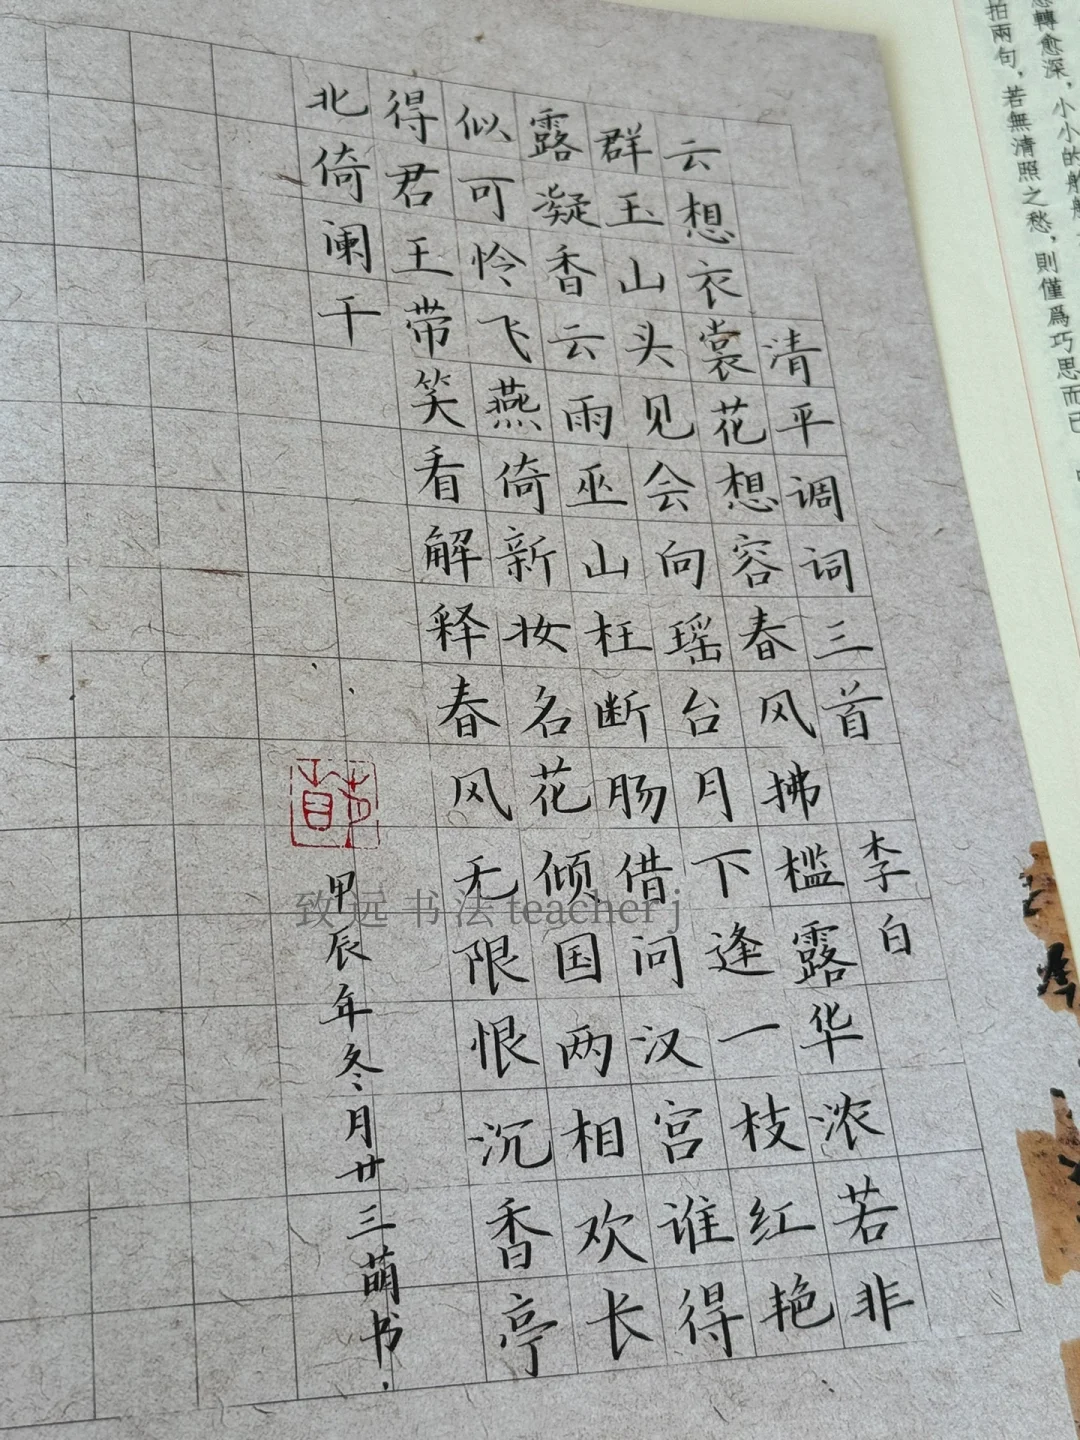 轉愈深，小小的
拍兩句，若無清照之愁，則僅爲巧思而已
清平调词三首 李白
云想衣裳花想容春风拂槛露华浓若非
群玉山头见会向瑶台月下逢一枝红艳
露凝香云雨巫山枉断肠借问汉宫谁得
似可怜飞燕倚新妆名花倾国两相欢长
得君王带笑看解释春风无限恨沉香亭
北倚阑干
甲辰年冬月廿三萌书
致远书法teacher j